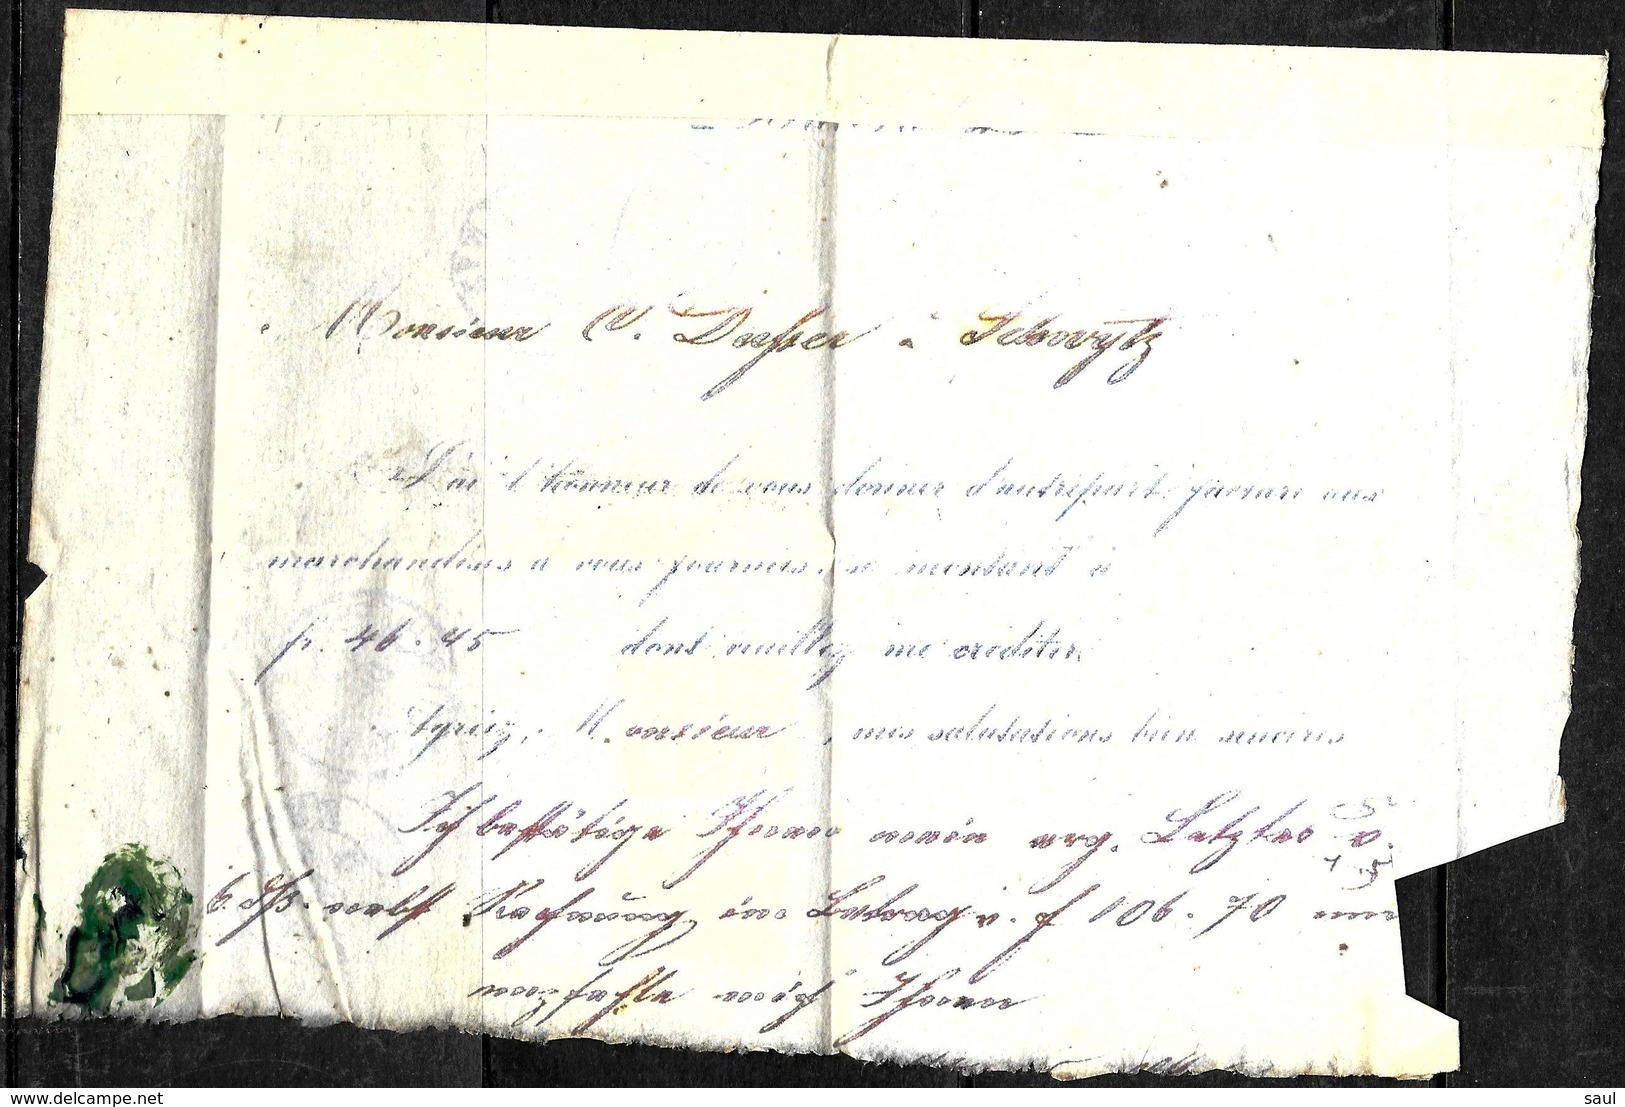 Monsieur C. Dasser à Schwytz
J'ai l'honneur de vous donner d'autrepart facture aux
marchandises a vous fournies, se montant à
fr. 46.45 dont veuillez me créditer.
Monsieur, mes salutations bien sincères
Ich bestätige Ihnen mein erg. Letztes v.
6. dß. nebst Rechnung im Betrag v. f 106.70 und
empfehle mich Ihnen
delcampe.net
saul